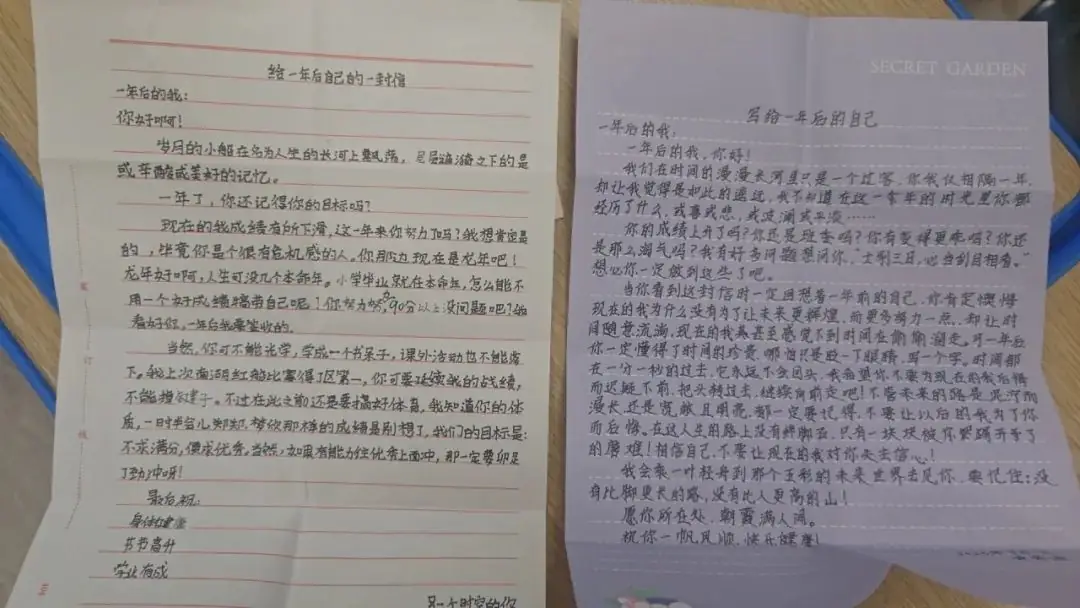 给一年后自己的一封信
一年后的我:
你好啊!
岁月的小船在名为人生的长河上飘荡,层层涟漪之下的是
或辛酸或美好的记忆。
一年了,你还记得你的目标吗?
现在的我成绩有所下滑,这一年来你努力了吗?我想肯定是
的,毕竟你是个很有危机感的人。你那边现在是龙年吧!
龙年好啊,人生可没几个本命年。小学毕业就在本命年,怎么能不
用一个好成绩犒劳自己呢?你努努,90分以上没问题吧?我
看好你,一年后我要签收的。
当然,你可不能光学,学成一个书呆子,课外活动也不能落
下。我上次南湖红船比赛得了区第一,你可要延续我的战绩,
不能摆子。不过在此之前还是要搞好体育,我知道你的体
质,一时半会儿那样的成绩是别想了,我们的目标是:
不求满分,但求优秀。当然,如果有能力往优秀上面冲,那一定要卯足
了劲冲呀!
最后祝:
身体健康
节节高升
学业有成
另一个时空的你
装
订
线
SECRET GARDEN
写给一年后的自己
一年后的我:
一年后的我,你好!
我们在时间的漫漫长河里只是一个过客,你我仅相隔一年,
却让我觉得是如此的遥远,我不知道在这一年的时光里你都
经历了什么,或喜或悲,或波澜或平淡……
你的成绩上升了吗?你还是班委吗?你有变得更乖吗?你还
是那么淘气吗?我有好多问题想问你,“士别三日,必当刮目相看。”
想必你一定做到这些了吧。
当你看到这封信时一定回想着一年前的自己,你肯定懊悔
现在的我为什么没有为了让未来更辉煌,而更多努力一点,却让时
间随意流淌,现在的我甚至感觉不到时间在偷偷溜走。可一年后
你一定懂得了时间的珍贵,哪怕只是眨一下眼睛,写一个字,时间都
在一分一秒的过去,它永远不会回头,我希望你不要为现在的我后悔
而迟疑不前,把头转过去,继续向前走吧!不管未来的路是泥泞而
漫长,还是宽敞且明亮,都一定要记得,不要让以后的我为了你
而后悔,在这人生的路上没有绊脚石,只有一块块被你紧踢开等了
的磨难!相信自己,不要让现在的我对你失去信心!
我会乘一叶轻舟到那个五彩的未来世界去见你,要记住:没
有比脚更长的路,没有比人更高的山!
愿你所在处,朝霞满人间。
祝你一帆风顺,快乐健康!